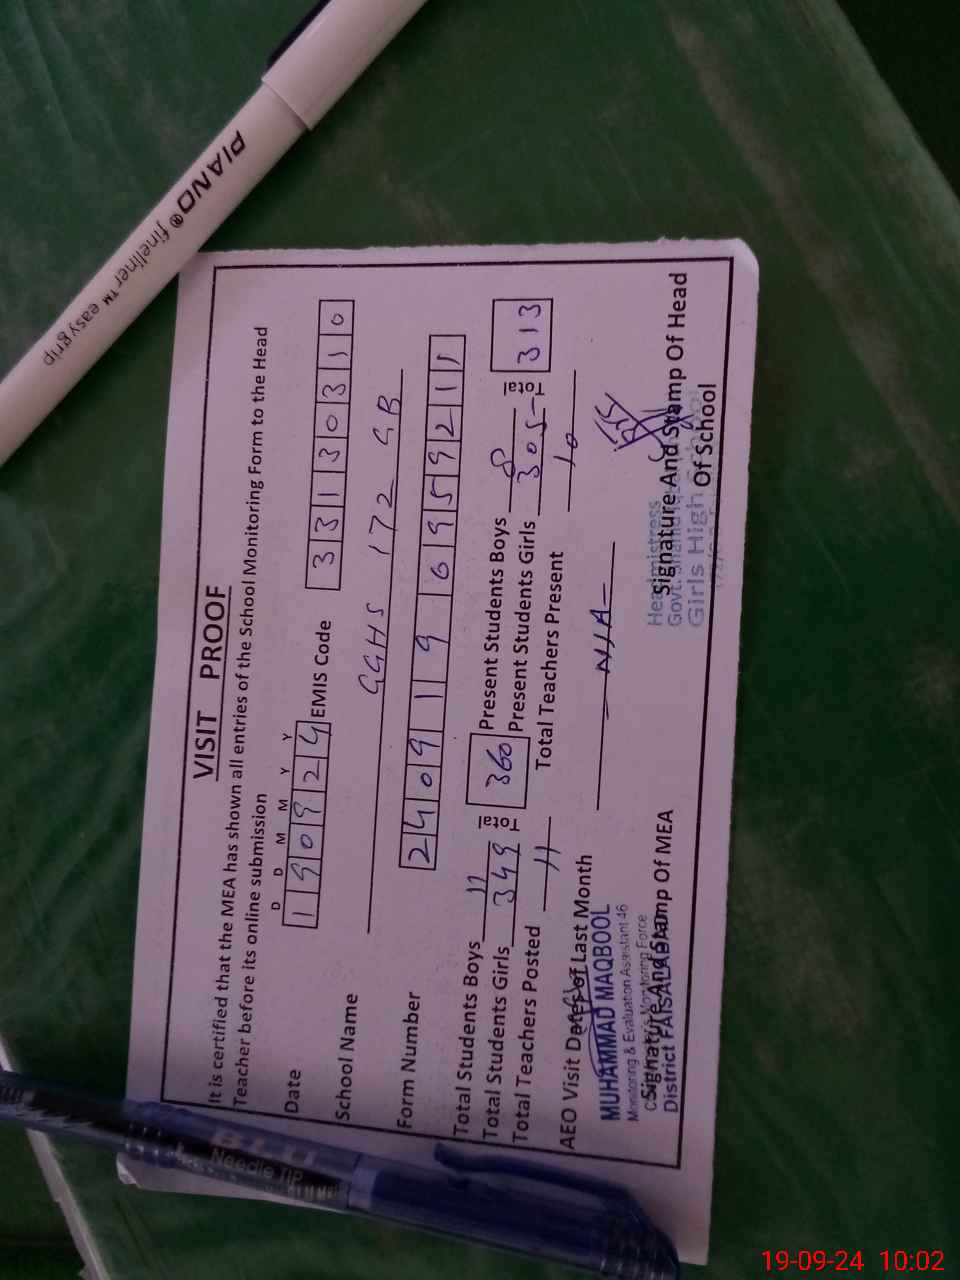 PIANO® fineliner™ easygrip
VISIT PROOF
It is certified that the MEA has shown all entries of the School Monitoring Form to the Head
Teacher before its online submission
D D M M Y Y
Date 190924 EMIS Code 33130310
School Name GGHS 172 GB
Form Number 24091996959211
Total Students Boys 11 Present Students Boys 8
Total Students Girls 349 Total 360 Present Students Girls 305 Total 313
Total Teachers Posted 11 Total Teachers Present 10
AEO Visit Dates of Last Month N/A
MUHAMMAD MAQBOOL
Monitoring & Evaluation Assistant 46
Monitoring Force
District FAISALABAD
Signature And Stamp Of MEA
Headmistress
Govt.
Girls High School
Signature And Stamp Of Head
Of School
Needle TIP
19-09-24 10:02